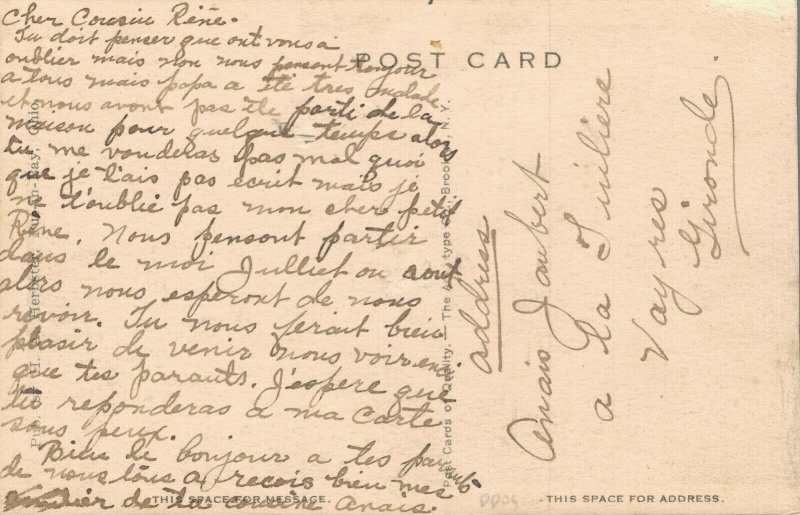 Cher Cousin Réné.
Tu doit penser que ont vous a
oublier mais non nous pensont toujour
a tous mais papa a été tres malade
et nous avont pas été parti de la
maison pour quelque temps alors
tu me vouderas pas mal quoi
que je t'ais pas ecrit mais je
ne t'oublie pas mon cher petit
Réne. Nous pensont partir
dans le moi Julliet ou aout
alors nous esperont de nous
revoir. Tu nous ferait bien
plasir de venir nous voir
que tes parants. J'espere que
tu reponderas a ma carte
sous peux.
Bien le bonjour a tes parants
de nous tous a recois bien mes
de ta cousine Anais.
THIS SPACE FOR MESSAGE.
POST CARD
Post Cards of Quality. — The Albertype Co., Brooklyn, N. Y.
Pub. by H. Herbster, Put-in-Bay, Ohio.
address
Anais Joubert
a La
Vayres
Gironde.
THIS SPACE FOR ADDRESS.